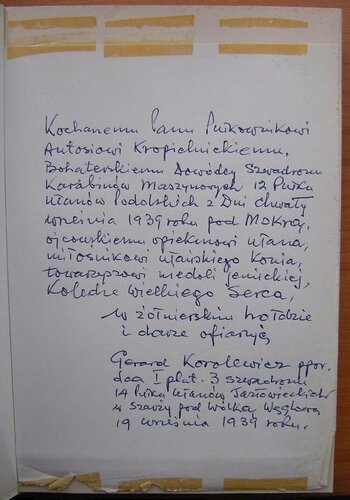 Kochanemu Panu Pułkownikowi
Antosiowi Kropielnickiemu,
Bohaterskiemu Dowódcy Szwadronu
Karabinów Maszynowych 12 Pułku
Ułanów Podolskich z Dni Chwały
września 1939 roku pod Mokrą,
ojcowskiemu opiekunowi ułana,
miłośnikowi ułańskiego konia,
towarzyszowi niedoli jenieckiej,
Koledze wielkiego Serca,
w żołnierskim hołdzie
i darze ofiaruję
Gerard Korolewicz ppor.
dca I plut. 3 szwadronu
14 Pułku Ułanów Jazłowieckich
w szarży pod Wólką Węglową
19 września 1939 roku.